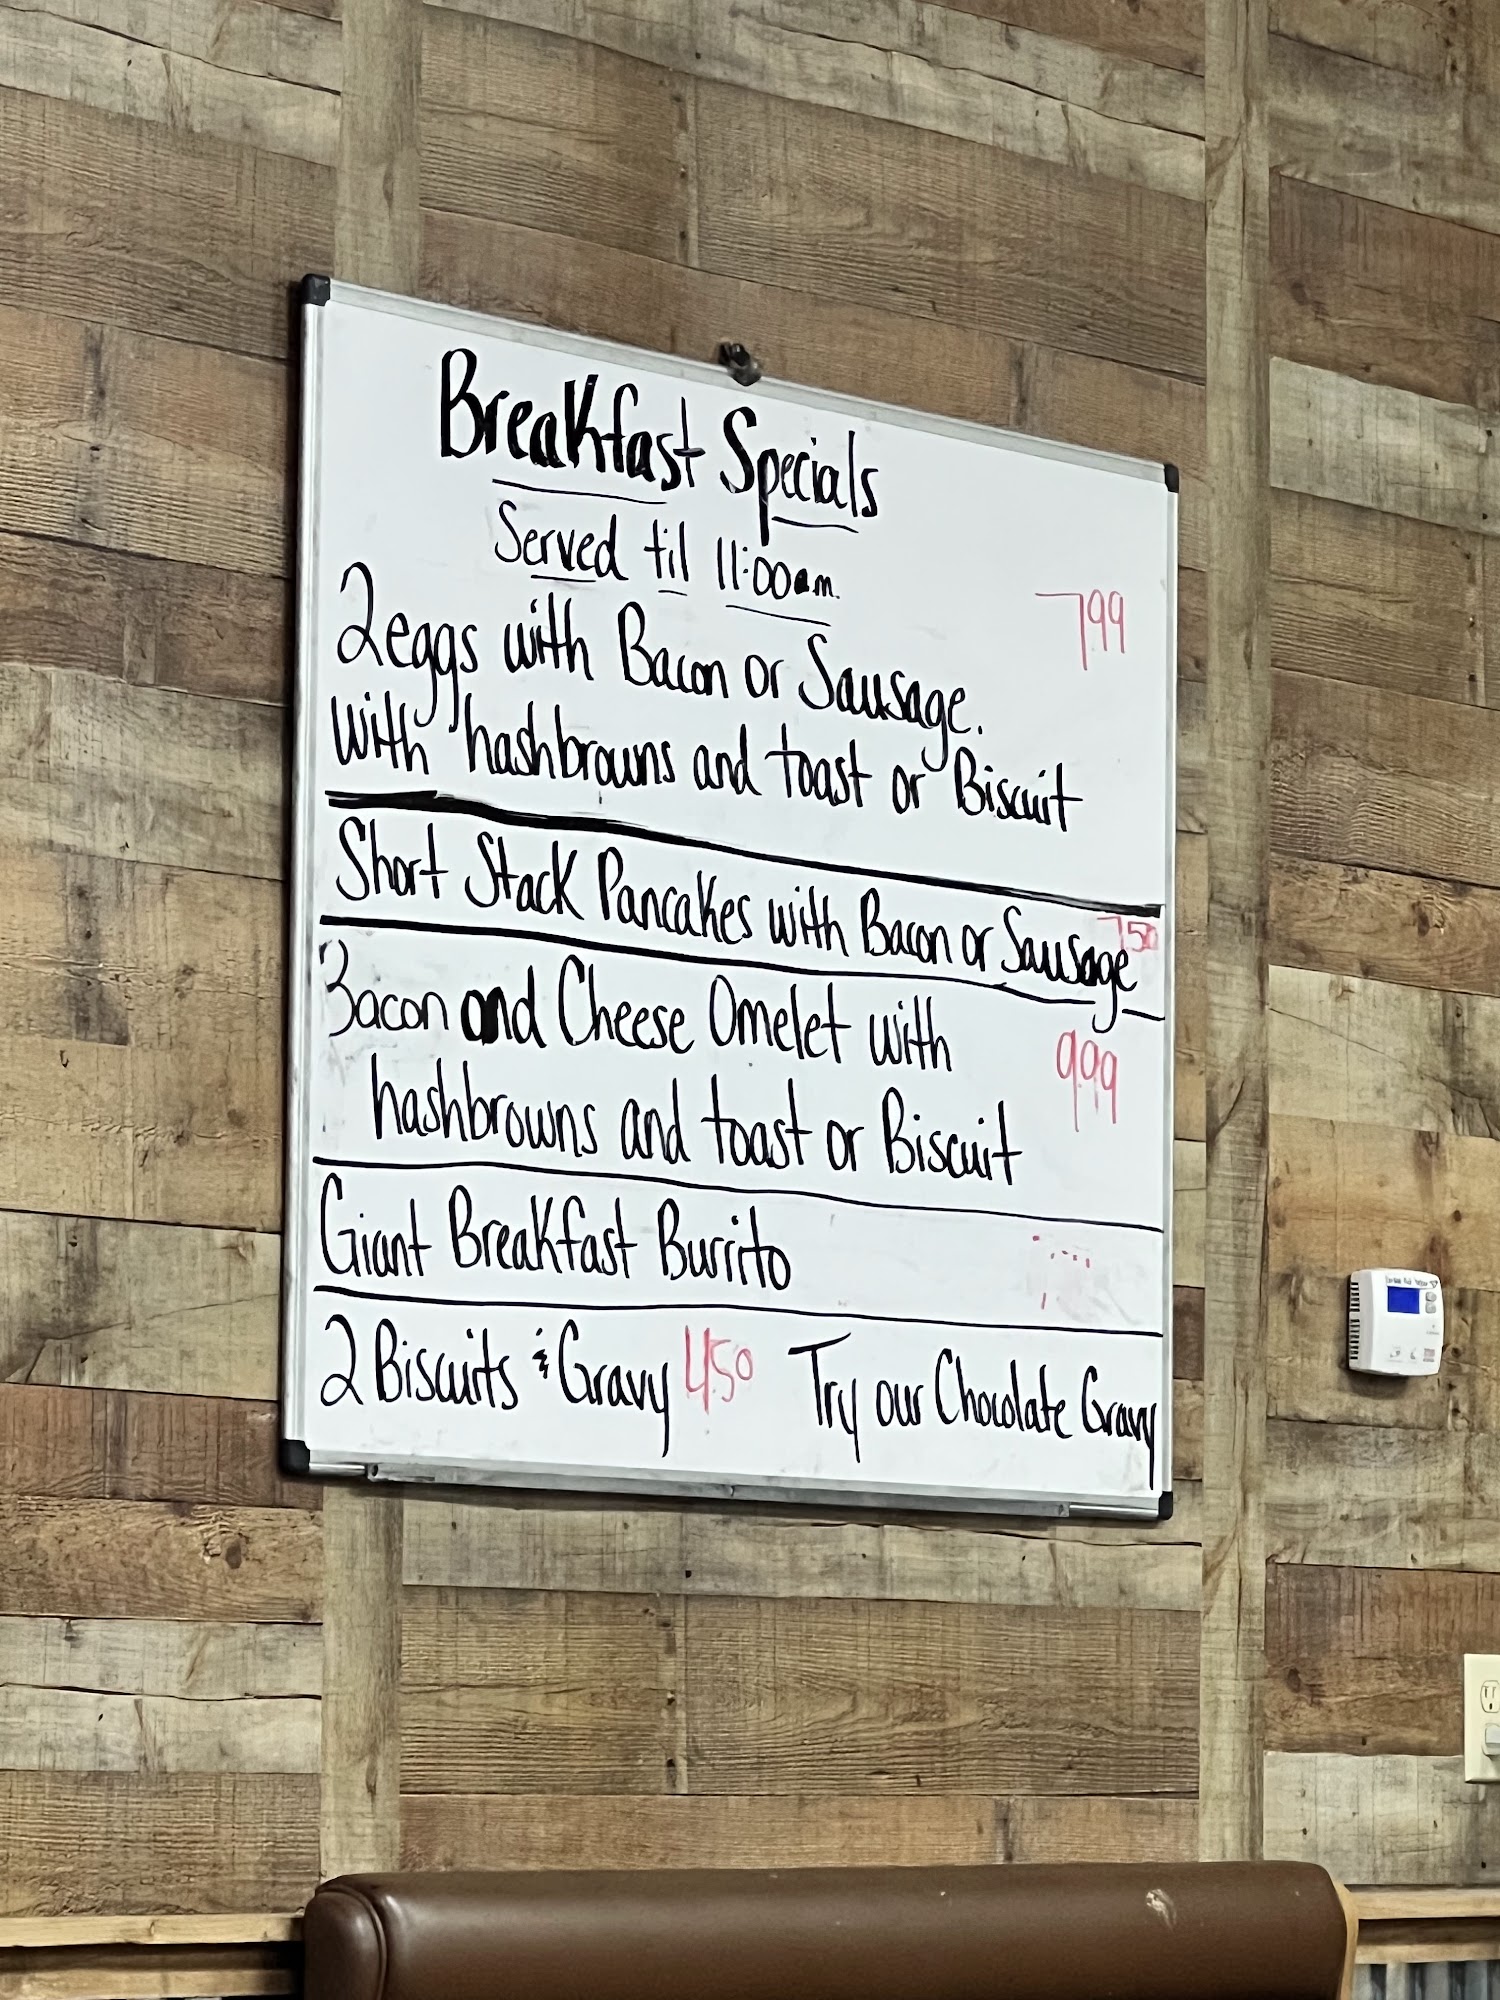 Breakfast Specials
Served til 11:00am.
2 eggs with Bacon or Sausage. 7.99
with hashbrowns and toast or Biscuit
Short Stack Pancakes with Bacon or Sausage 7.50
Bacon and Cheese Omelet with 9.99
hashbrowns and toast or Biscuit
Giant Breakfast Burrito
2 Biscuits & Gravy 4.50 Try our Chocolate Gravy